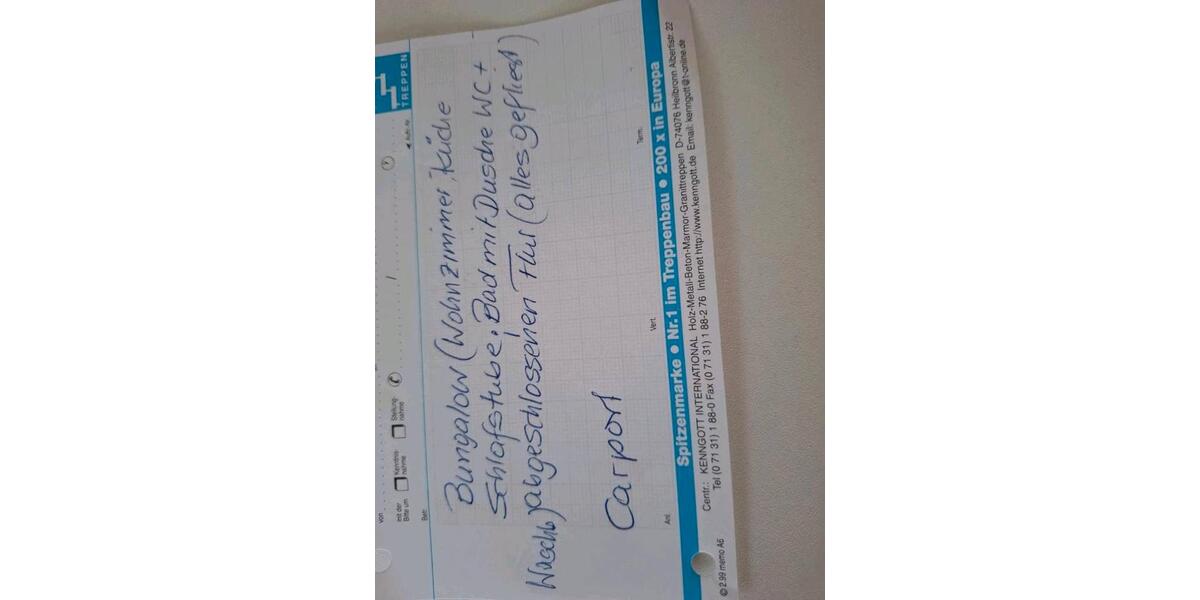 TREPPEN
◄ Aufn.-Nr.
von
mit der
Bitte um
Kenntnis-
nahme
Stellung-
nahme
Betr.
Bungalow (Wohnzimmer, Küche
Schlafstube, Bad mit Dusche WC +
Waschb) abgeschlossenen Flur (alles gefliest)
Carport
Anl.
Vert.
Term.
Spitzenmarke ● Nr.1 im Treppenbau ● 200 x in Europa
Centr.: KENNGOTT INTERNATIONAL Holz-Metall-Beton-Marmor-Granittreppen D-74076 Heilbronn Albertistr. 22
Tel (0 71 31) 1 88-0 Fax (0 71 31) 1 88-2 76 Internet http://www.kenngott.de Email: kenngott@t-online.de
© 2.99 memo A6